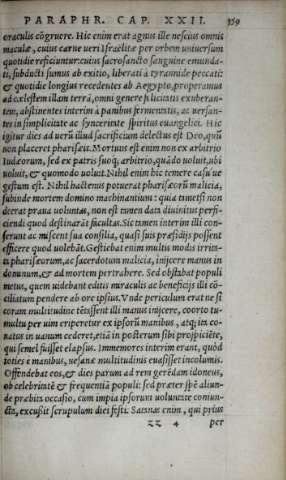 PARAPHR. CAP. XXII. 359
eraculis cõgruere. Hic enim erat agnus ille nescius omnis
maculæ, cuius carne ueri Israëlitæ per orbem uniuersum
quotidie reficiuntur: cuius sacrosancto sanguine emunda-
ti, subducti sumus ab exitio, liberati à tyrannide peccati:
& quotidie longius recedentes ab Aegypto, properamus
ad cœlestem illam terrã, omni genere felicitatis exuberan-
tem, abstinentes interim à panibus fermentatis, ac uersan-
tes in simplicitate ac synceritate spiritus euangelici. Hic
igitur dies ad uerũ illud sacrificium delectus est Deo, quũ
non placeret pharisæis. Mortuus est enim non ex arbitrio
Iudæorum, sed ex patris suoq; arbitrio, quã do uoluit, ubi
uoluit, & quomodo uoluit. Nihil enim hic temere casu'ue
gestum est. Nihil hactenus potuerat pharisæorũ malicia,
subinde mortem domino machinantium: quia tametsi non
deerat praua uoluntas, non est tamen data diuinitus perfi-
ciendi quod destinarãt facultas. Sic tamen interim illi con-
ferunt ac miscent sua consilia, quasi suis præsidijs possent
efficere quod uolebãt. Gestiebat enim multis modis irrita-
ta pharisæorum, ac sacerdotum malicia, inijcere manus in
dominum, & ad mortem pertrahere. Sed obstabat populi
metus, quem uidebant editis miraculis ac beneficijs illi cõ-
ciliatum pendere ab ore ipsius. Vnde periculum erat ne si
coram multitudine tetisssent illi manus inijcere, coorto tu-
multu per uim eriperetur ex ipsorũ manibus, atq; ita co-
natus in uanum cederet, etiã in posterum sibi prospiciẽte,
qui semel fuisset elapsus. Immemores interim erant, quòd
toties & manibus, uesanæ multitudinis euasisset incolumis.
Offendebat eos, & dies parum ad rem gerẽdam idoneus,
ob celebritatẽ & frequentiã populi: sed præter spẽ aliun-
de præbita occasio, cum impia ipsorum uoluntate coniun-
cta, excußit scrupulum diei festi. Satanas enim, qui prius
zz 4 per